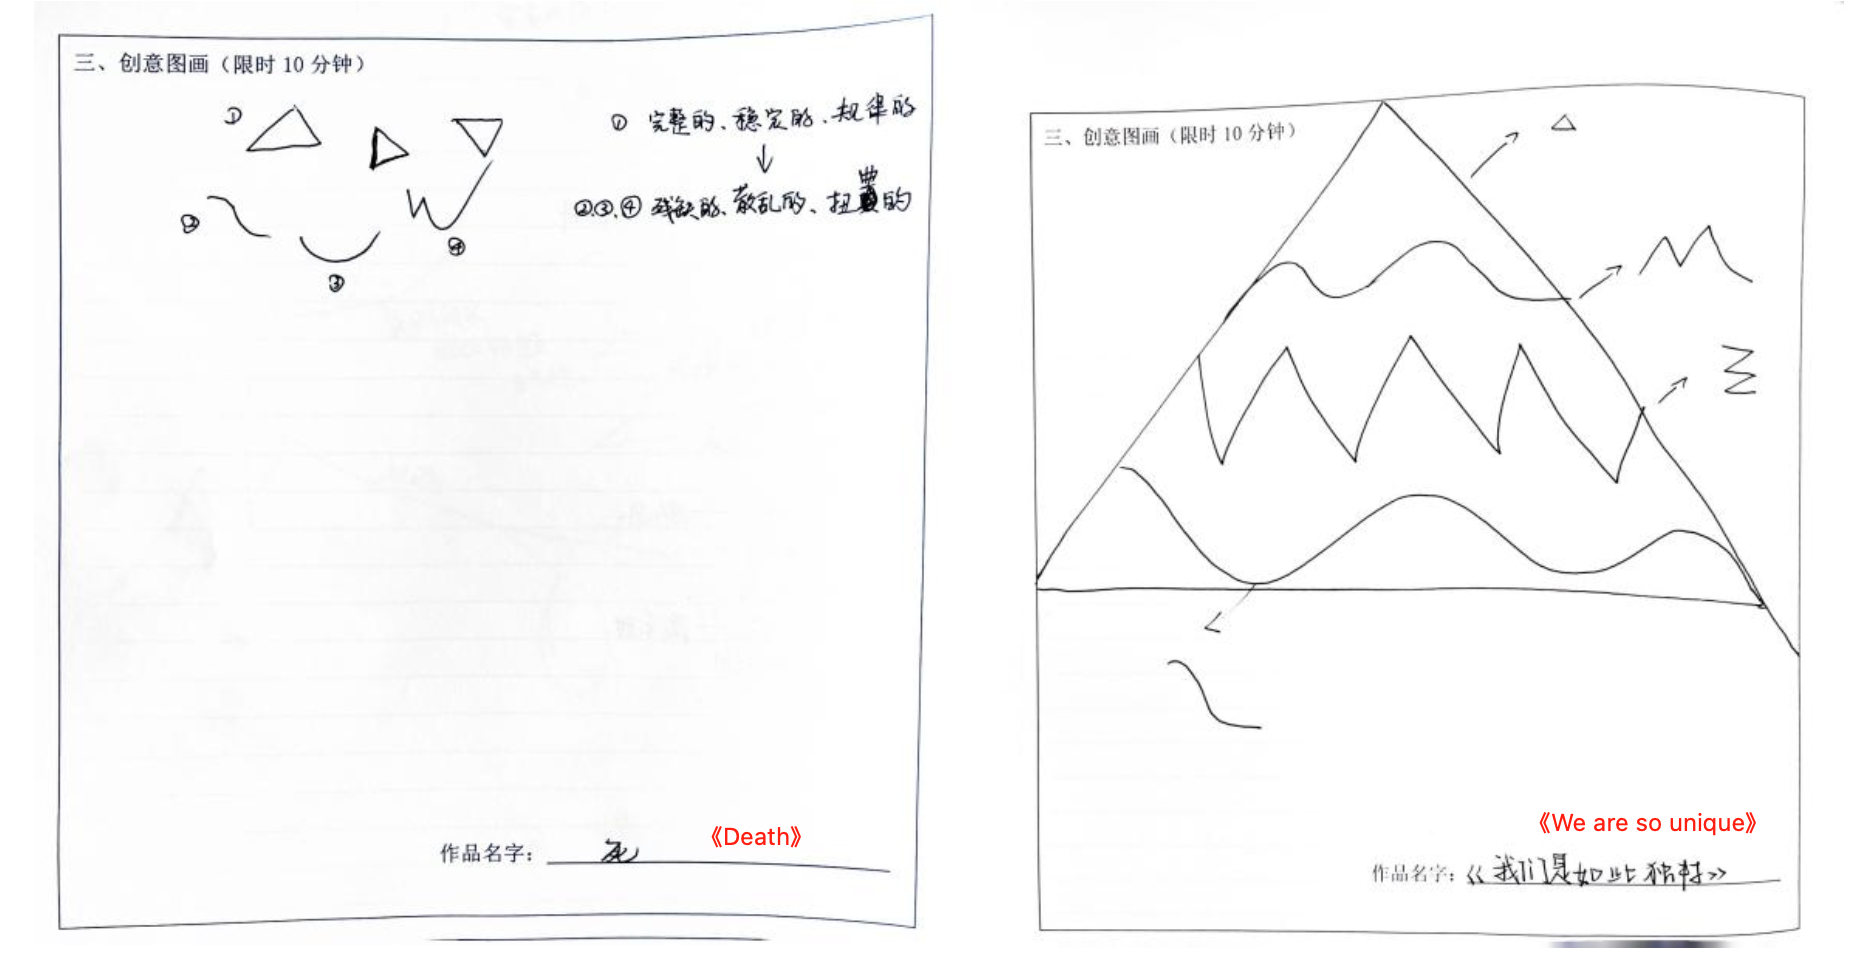 三、创意图画（限时 10 分钟）
①
① 完整的、稳定的、规律的
②
②、③、④ 残缺的、散乱的、扭曲的
④
③
《Death》
作品名字： 死
三、创意图画（限时 10 分钟）
《We are so unique》
作品名字：《我们是如此独特》